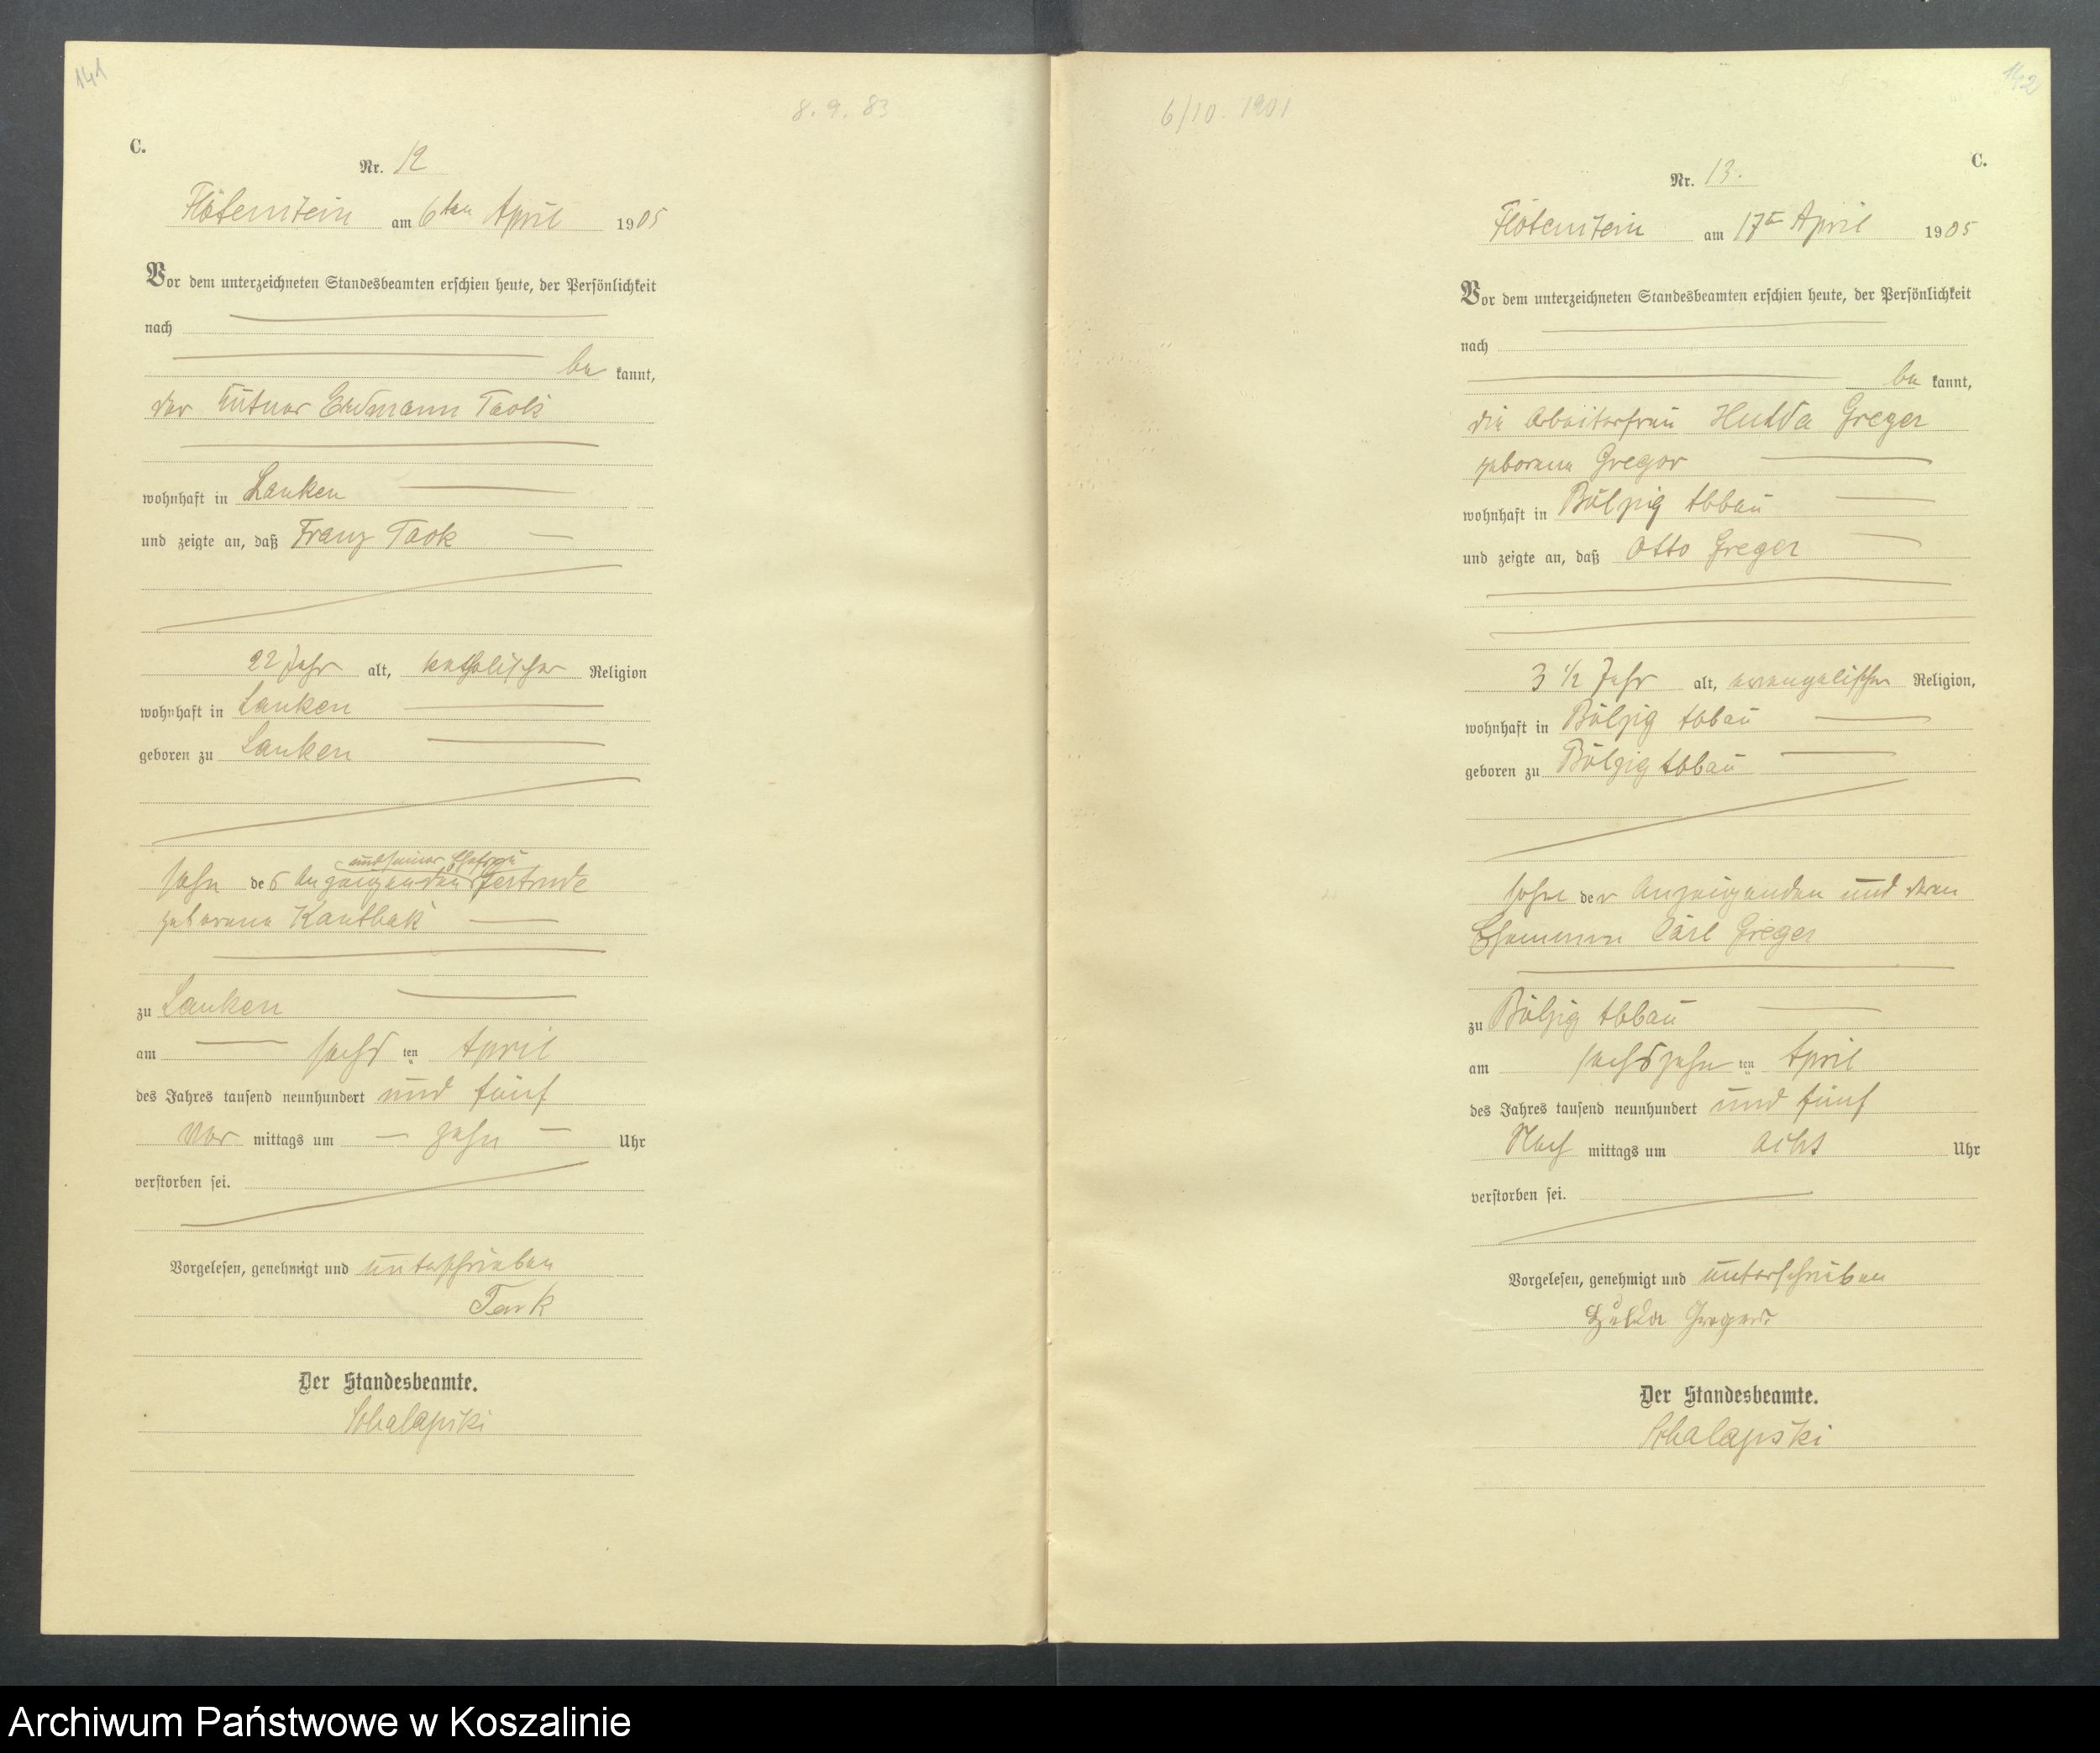 141
8. 9. 83
C.
Nr. 12
Flötenstein am 6ten April 1905
Vor dem unterzeichneten Standesbeamten erschien heute, der Persönlichkeit
nach
be kannt,
der Erdmann
wohnhaft in Lanken
und zeigte an, daß Franz
22 Jahr alt, katholischer Religion
wohnhaft in Lanken
geboren zu Lanken
und seiner Ehefrau
Sohn des Anzeigenden Gertrude
geborene
zu Lanken
am sechs ten April
des Jahres tausend neunhundert und fünf
Vor mittags um zehn Uhr
verstorben sei.
Vorgelesen, genehmigt und unterschrieben
Der Standesbeamte.
Schalapski
6/10. 1901
142
C.
Nr. 13.
Flötenstein am 17t April 1905
Vor dem unterzeichneten Standesbeamten erschien heute, der Persönlichkeit
nach
be kannt,
die Arbeiterfrau Hulda Greger
geborene Greger
wohnhaft in Bölzig Abbau
und zeigte an, daß Otto Greger
3 1/2 Jahr alt, evangelischer Religion,
wohnhaft in Bölzig Abbau
geboren zu Bölzig Abbau
Sohn der Anzeigenden und deren
Ehemann Carl Greger
zu Bölzig Abbau
am sechszehn ten April
des Jahres tausend neunhundert und fünf
Nach mittags um acht Uhr
verstorben sei.
Vorgelesen, genehmigt und unterschrieben
Hulda Greger
Der Standesbeamte.
Schalapski
Archiwum Państwowe w Koszalinie